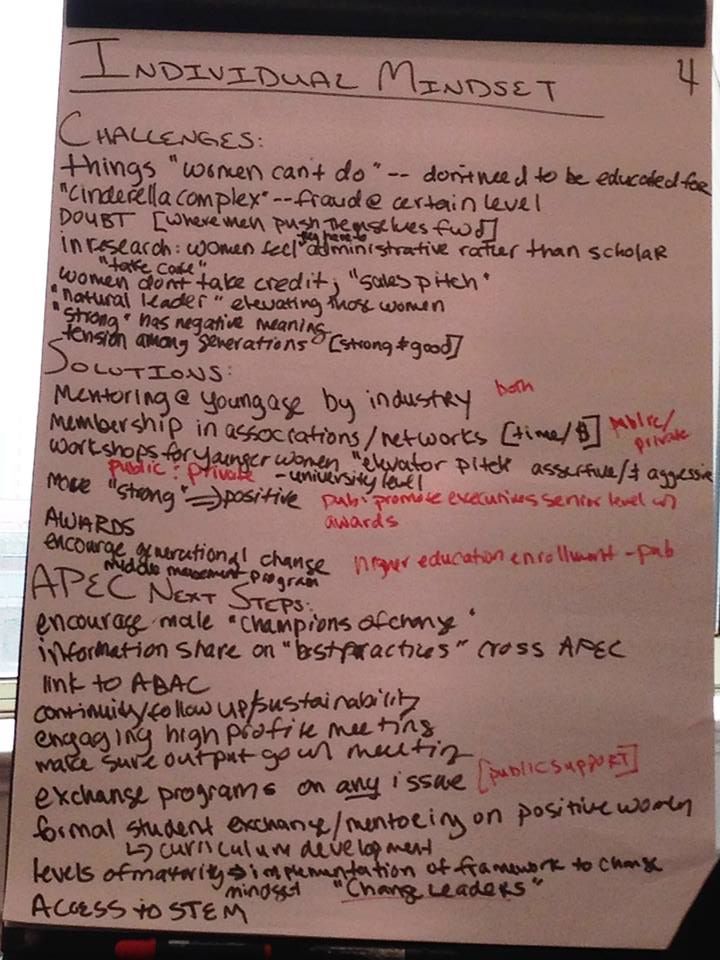 INDIVIDUAL MINDSET 4
CHALLENGES:
things "women can't do" -- don't need to be educated for
"Cinderella complex" -- fraud @ certain level
DOUBT [where men push themselves fwd]
in research: women feel they have to "administrative rather than scholar
"take care"
women don't take credit; "sales pitch"
"natural leader" elevating those women
"strong" has negative meaning
tension among generations [strong ≠ good]
SOLUTIONS:
Mentoring @ young age by industry both
membership in associations/networks [time/$] public/private
workshops for younger women "elevator pitch" assertive/≠ aggressive
public: private - university level
move "strong" ⇒ positive pub: promote executives senior level w/ awards
AWARDS
encourage generational change higher education enrollment - pub
middle management program
APEC NEXT STEPS:
encourage male "Champions of change"
information share on "best practices" cross APEC
link to ABAC
continuity/follow up/sustainability
engaging high profile meeting
make sure output go w/ meeting
exchange programs on any issue [public support]
formal student exchange/mentoring on positive women
↳ curriculum development
levels of maturity ⇒ implementation of framework to change
mindset "Change Leaders"
Access to STEM